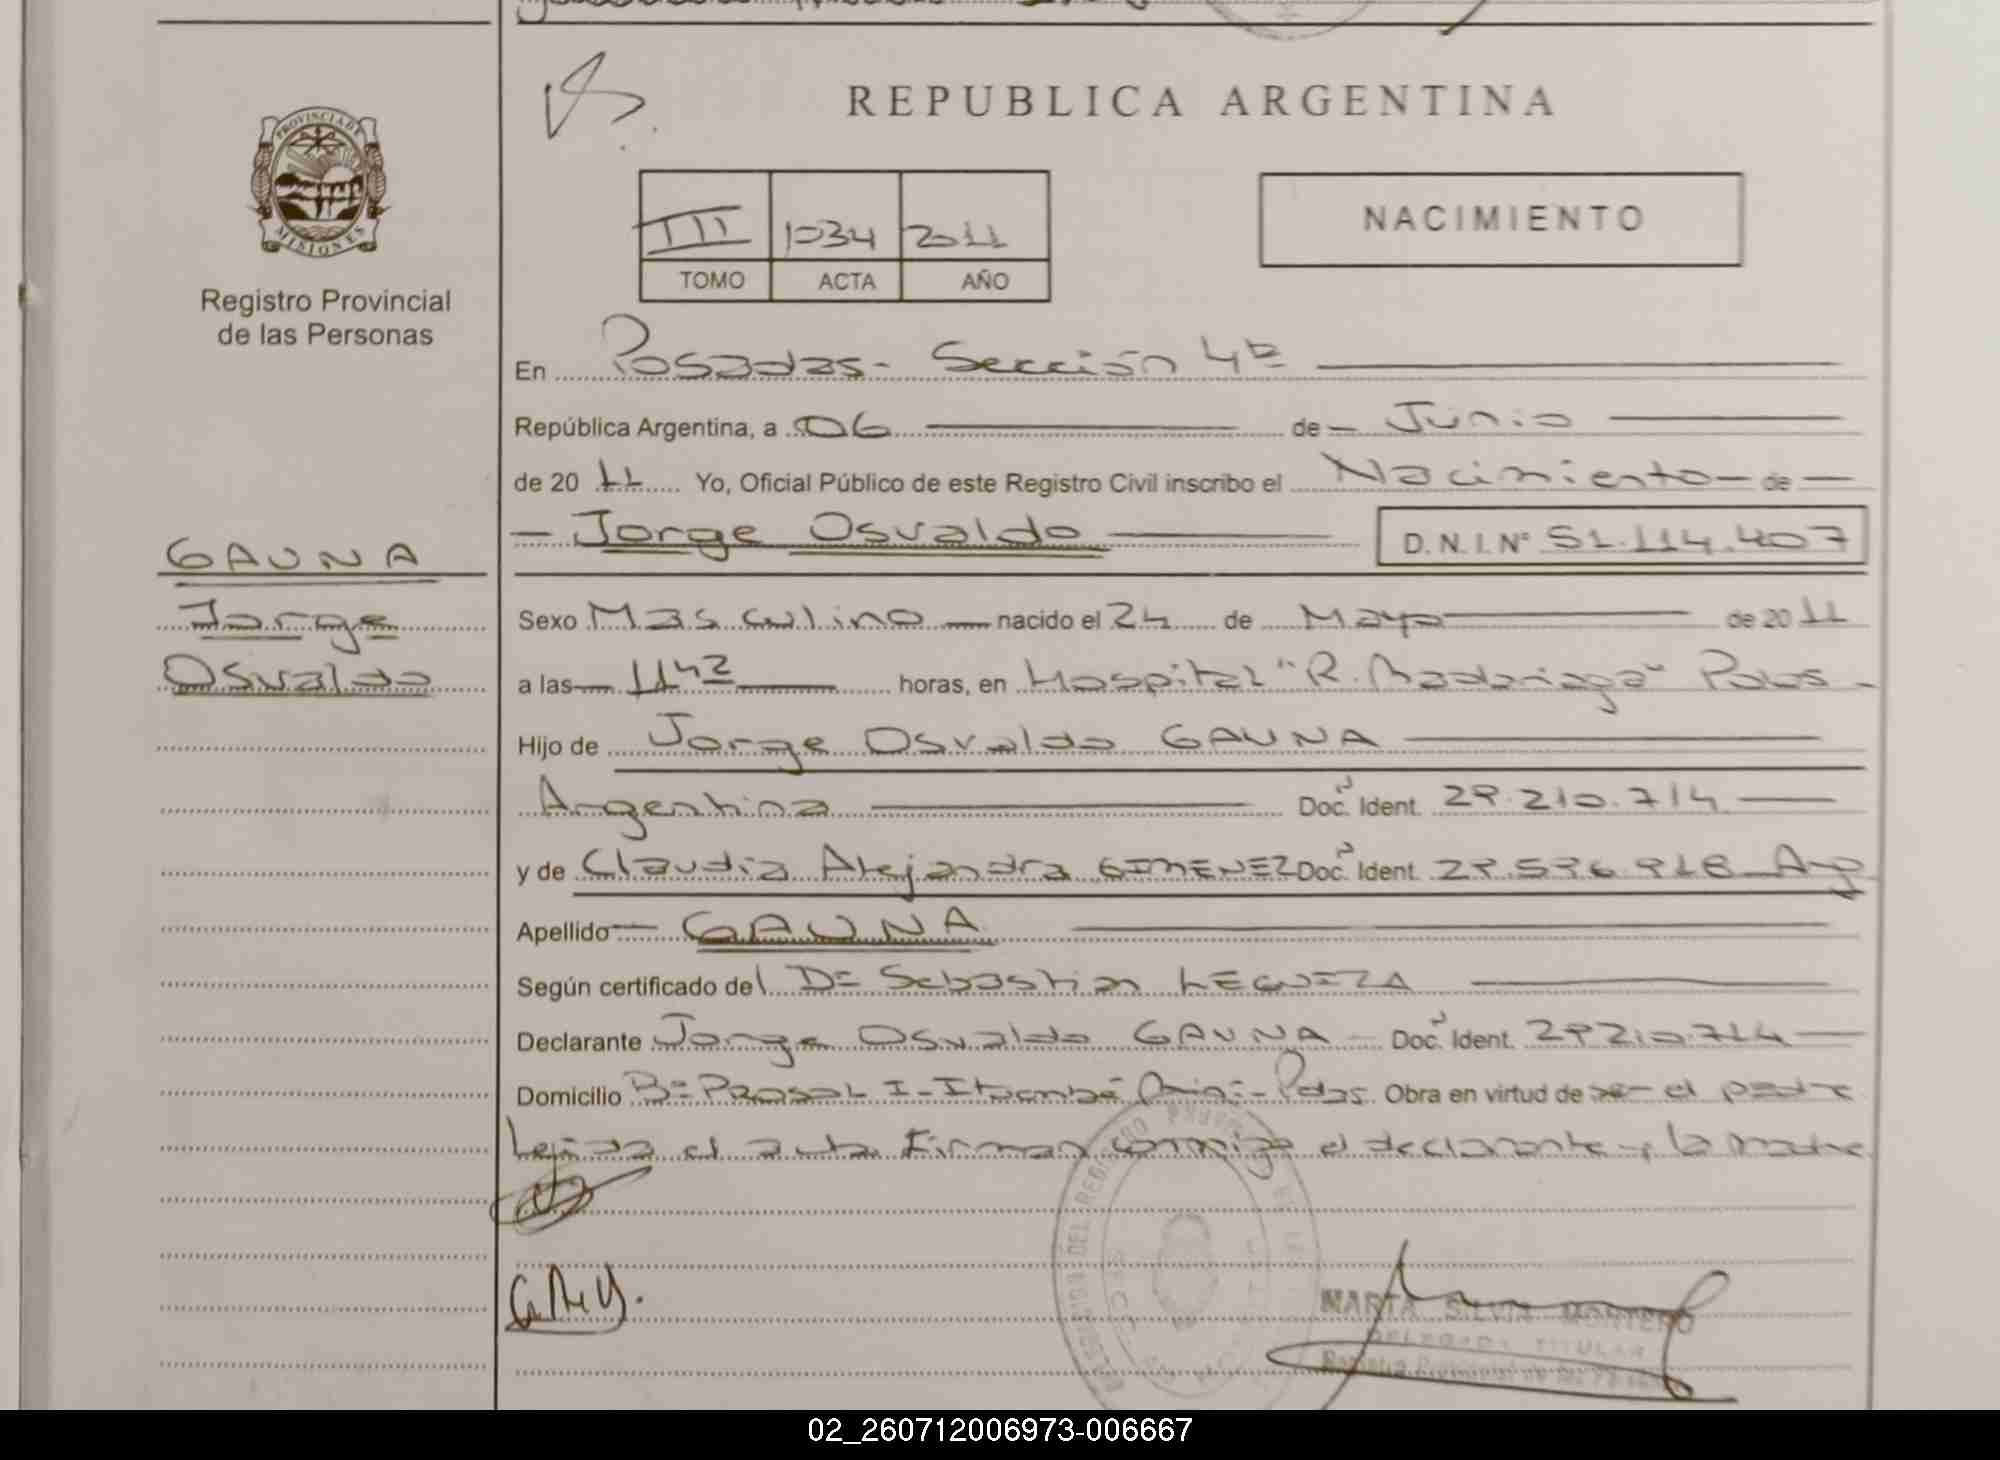 REPUBLICA ARGENTINA
PROVINCIA DE
MISIONES
Registro Provincial
de las Personas
III 1034 2011
TOMO ACTA AÑO
NACIMIENTO
En Posadas - Sección 4ta
República Argentina, a 06 de Junio
de 2011 Yo, Oficial Público de este Registro Civil inscribo el Nacimiento de
Jorge Osvaldo D.N.I.Nº 51.114.407
GAUNA
Jorge
Osvaldo
Sexo Masculino nacido el 24 de Mayo de 2011
a las 11 42 horas, en Hospital "R. Madariaga" Pdas -
Hijo de Jorge Osvaldo GAUNA
Argentina Doc. Ident. 29.210.714
y de Claudia Alejandra GIMENEZ Doc. Ident. 29.596.918 Arg
Apellido GAUNA
Según certificado del Dr Sebastian LEGUIZA
Declarante Jorge Osvaldo GAUNA Doc. Ident. 29210.714
Domicilio Bº PROSOL I - Itaembé Miní - Pdas Obra en virtud de ser el padre
Leida el acta Firman conmigo el declarante y la madre
MARTA SILVIA MONTERO
DELEGADA TITULAR
Registro Provincial de las
02_260712006973-006667